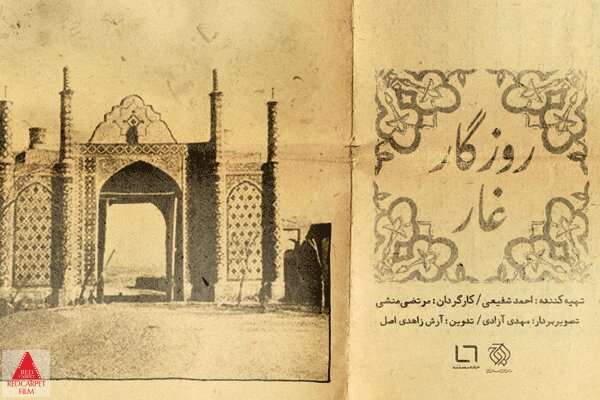 روزگار
غار
تهیه‌کننده: احمد شفیعی / کارگردان: مرتضی منشی
تصویربردار: مهدی آزادی / تدوین: آرش زاهدی اصل
خانه مستند
RED
CARPET
REDCARPET
FILM